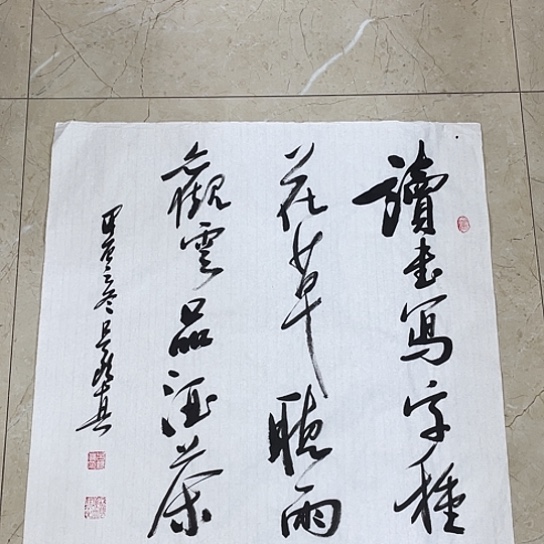 讀书寫字種
花草聽雨
觀雲品酒茶
甲辰之冬吴